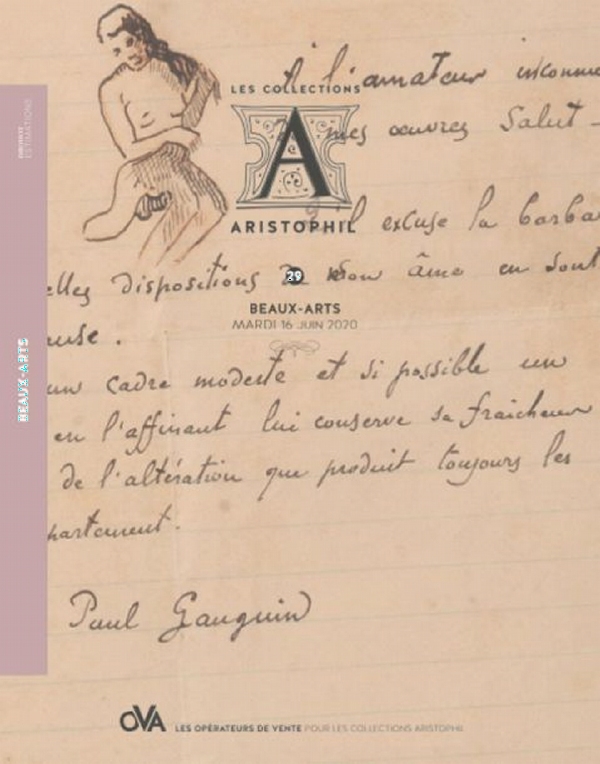 à l'amateur inconnu
LES COLLECTIONS
A
mes œuvres Salut -
qu'il excuse la barba
ARISTOPHIL
elles dispositions de mon âme en sont
39
BEAUX-ARTS
MARDI 16 JUIN 2020
ause.
un cadre modeste et si possible un
en l'affinant lui conserve sa fraîcheur
de l'altération que produit toujours les
partement.
Paul Gauguin
BEAUX-ARTS
DROUOT
ESTIMATIONS
OVA LES OPÉRATEURS DE VENTE POUR LES COLLECTIONS ARISTOPHIL